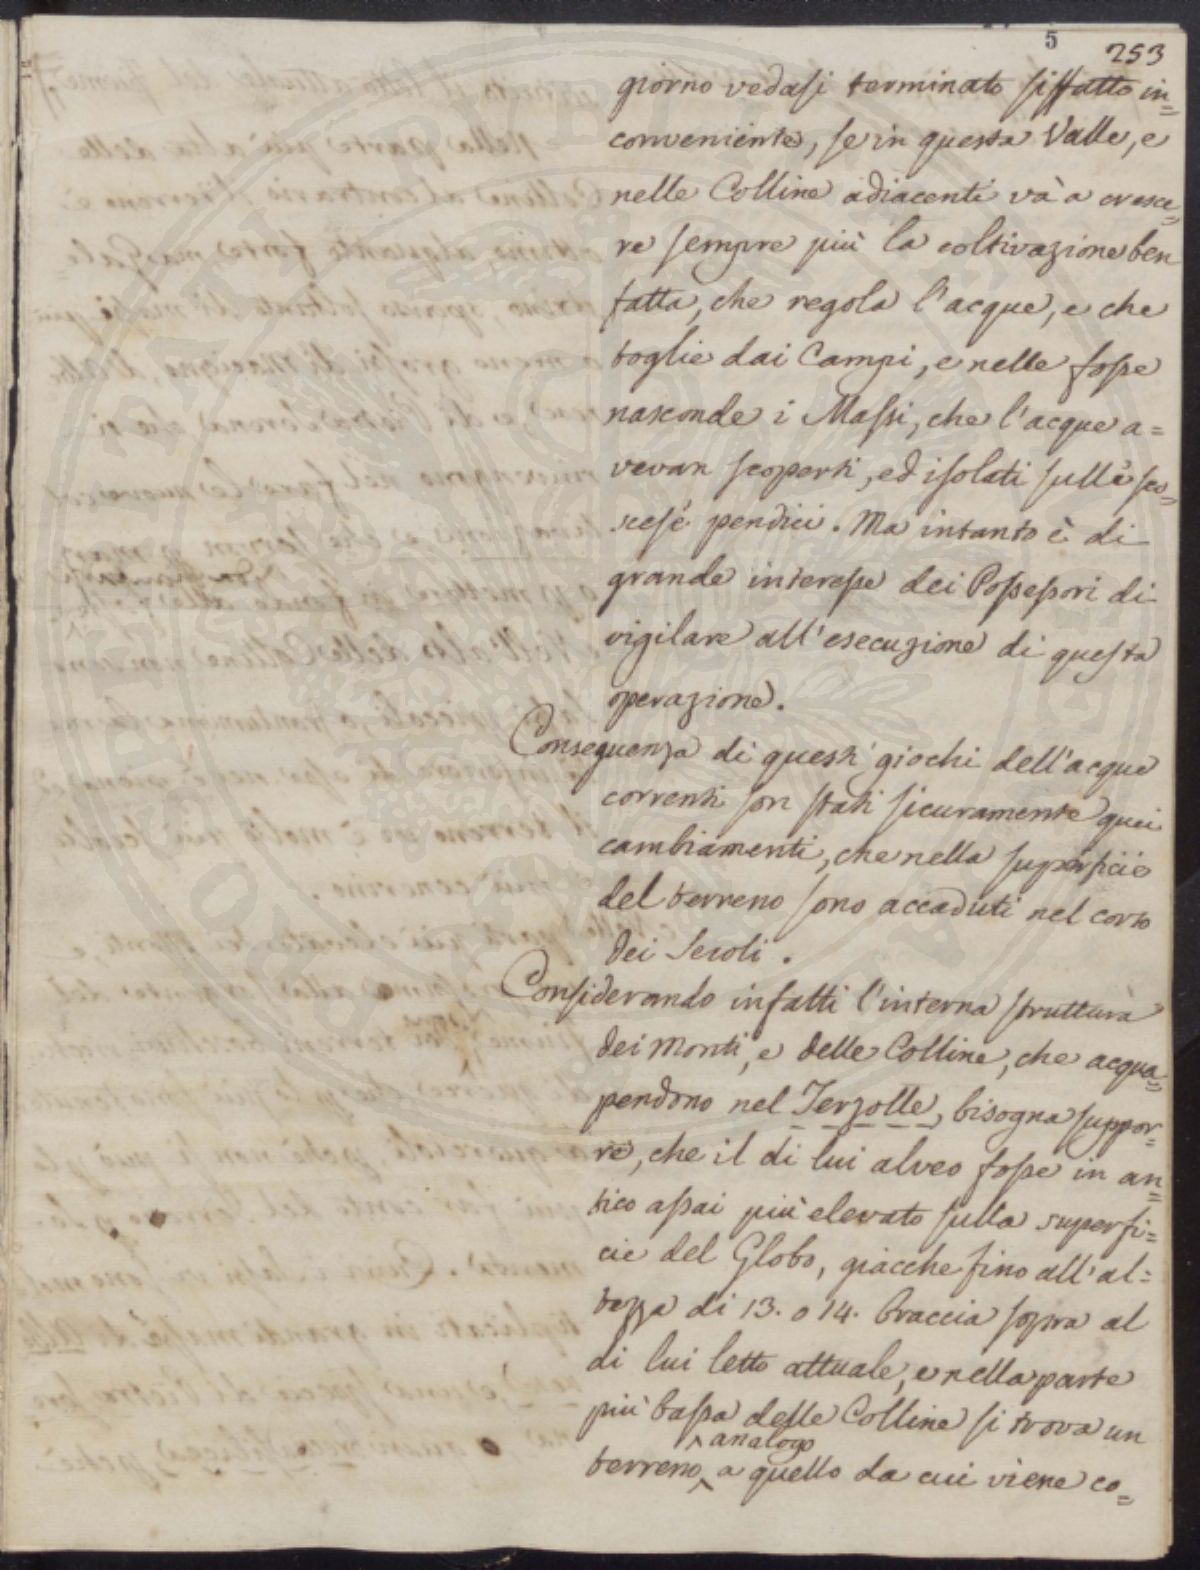 5
253
giorno vedasi terminato siffatto in=
conveniente, se in questa Valle, e
nelle Colline adiacenti và a cresce=
re sempre più la coltivazione ben
fatta, che regola l'acque, e che
toglie dai Campi, e nelle fosse
nasconde i Massi, che l'acque a=
vevan scoperti, ed isolati sulle sco=
scese pendici. Ma intanto è di
grande interesse dei Possessori di
vigilare all'esecuzione di questa
operazione.
Conseguenza di questi giochi dell'acque
correnti son stati sicuramente quei
cambiamenti, che nella superficie
del terreno sono accaduti nel corso
dei Secoli.
Considerando infatti l'interna struttura
dei Monti, e delle Colline, che acqua=
pendono nel Terzolle, bisogna suppor=
re, che il di lui alveo fosse in an=
tico assai più elevato sulla superfi=
cie del Globo, giacche fino all'al=
tezza di 13. o 14. braccia sopra al
di lui letto attuale, e nella parte
più bassa delle Colline si trova un
analogo
terreno a quello da cui viene co=